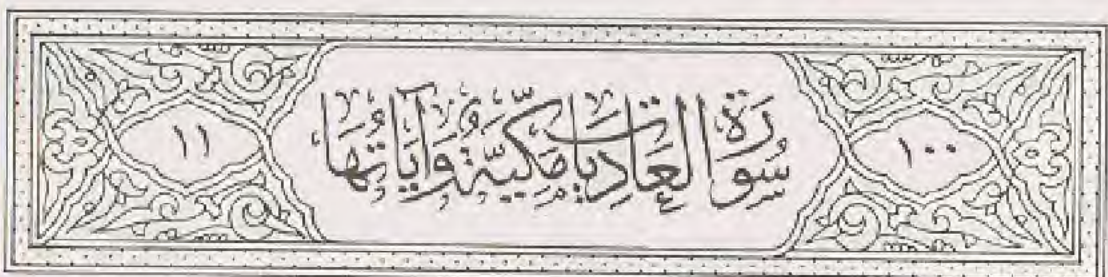 ١٠٠ سُورَةُ العَادِيَاتِ مَكِّيَّة وَآيَاتُهَا ١١